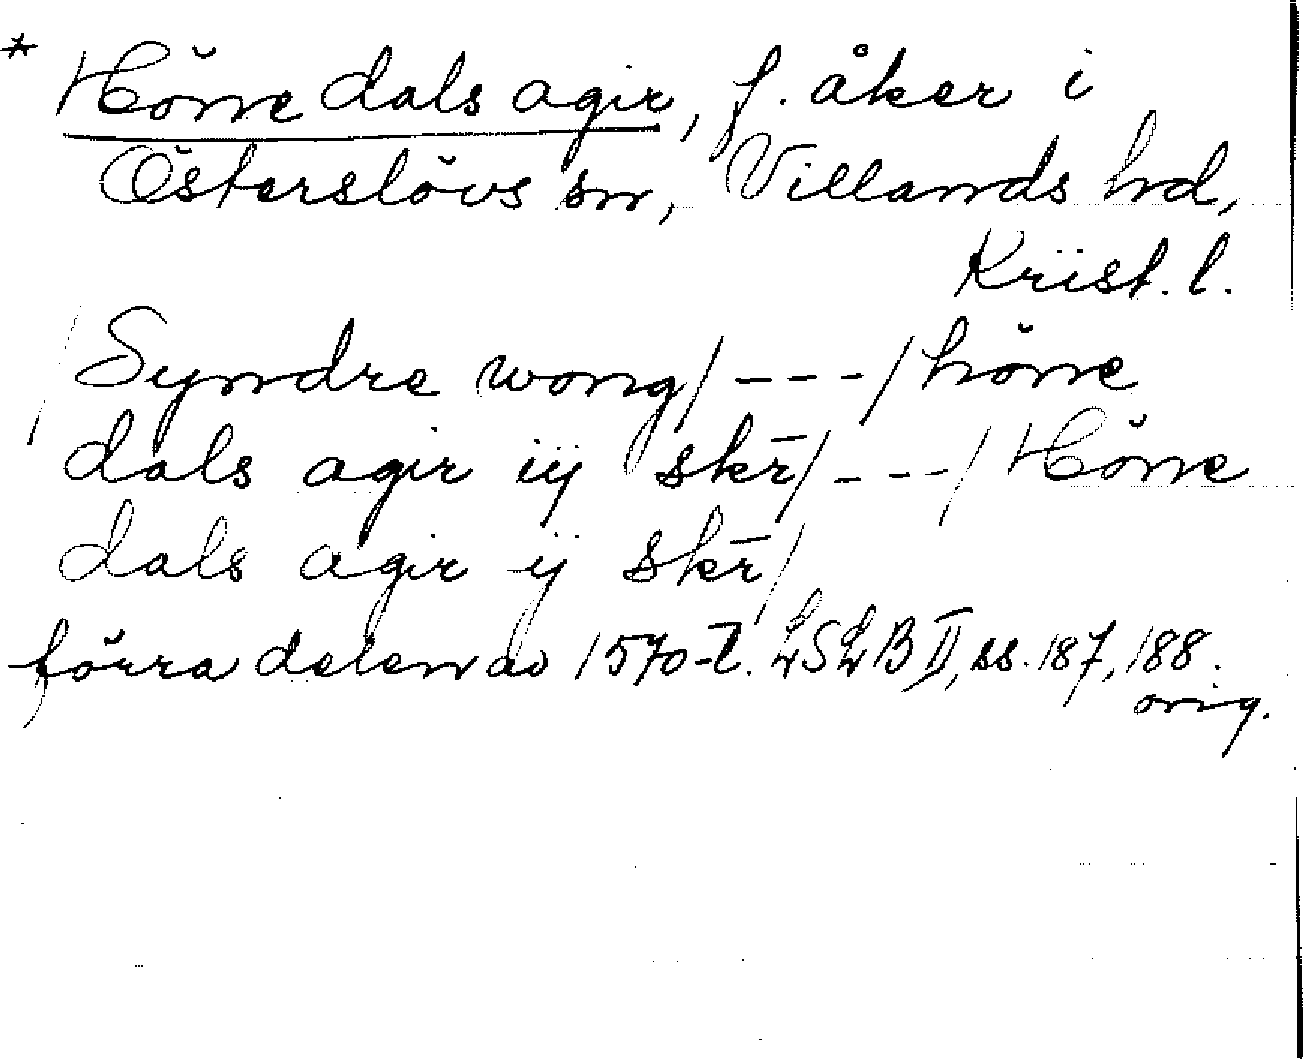 * Hörre dals agir, f. åker i
Österslövs sn, Villands hd,
Krist. l.
/Syndre wong/ - - - / hörre
dals agir iij skr̄/ - - - / Hörre
dals agir ij skr̄/
förra delen av 1570-t. LSLB II, ss. 187, 188.
orig.